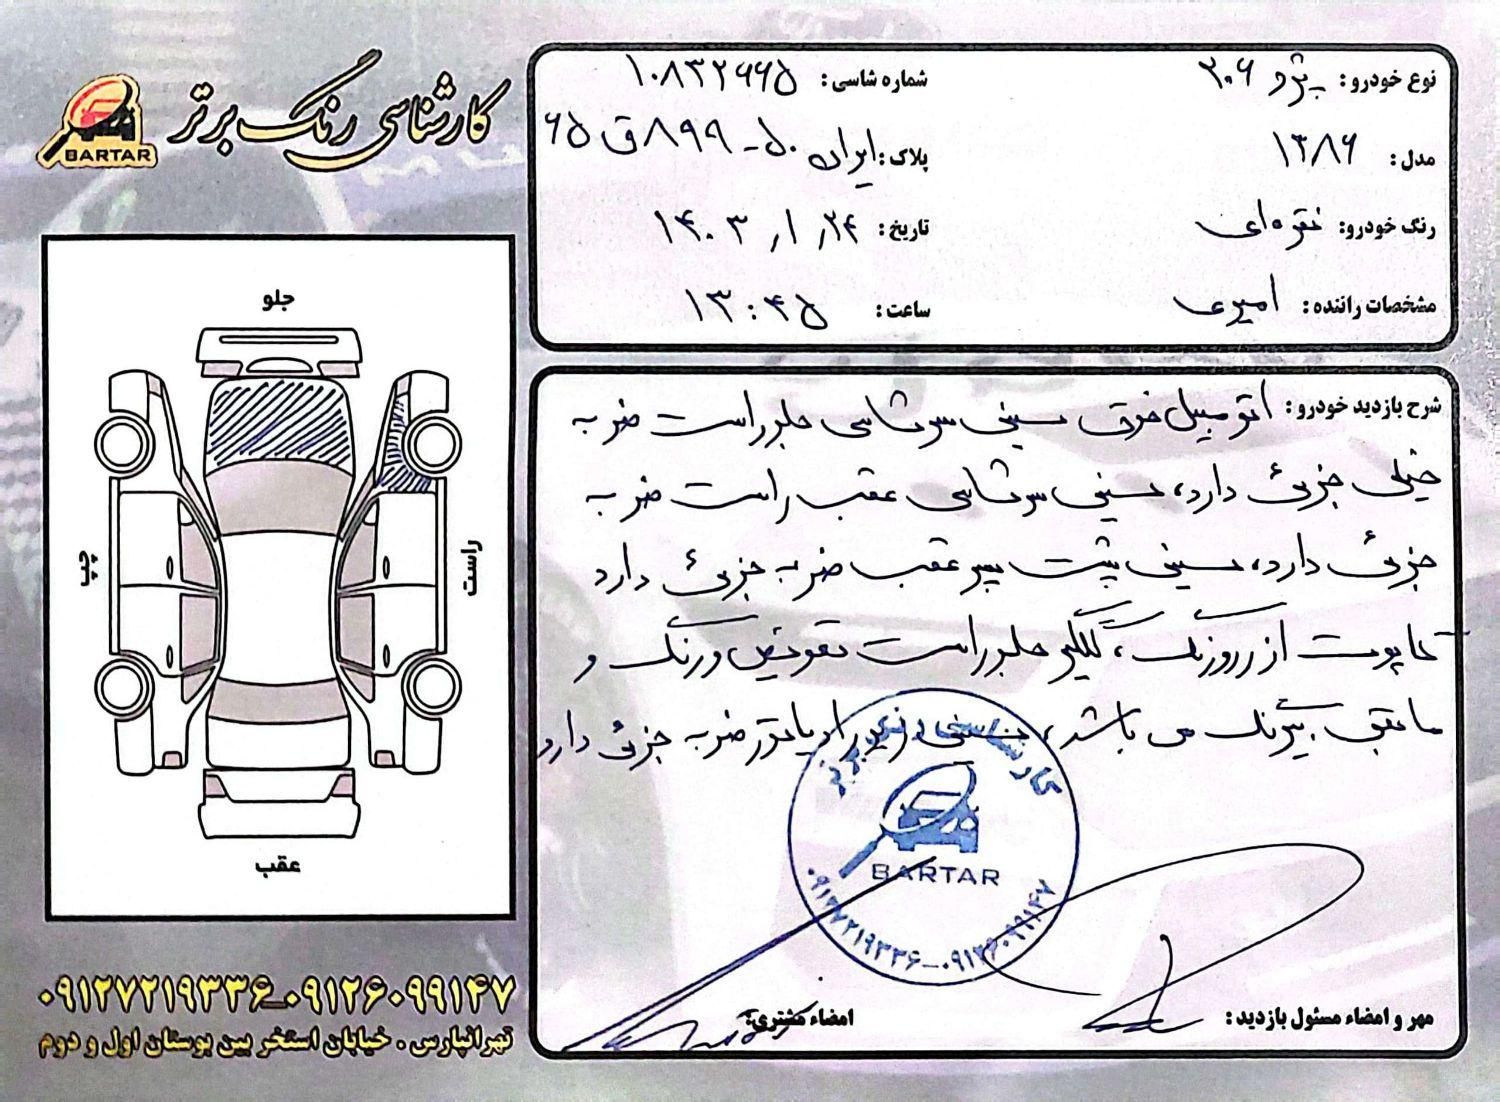 کارشناسی رنگ برتر
BARTAR
نوع خودرو: پژو ۲۰۶
شماره شاسی: ۱۰۸۳۲۶۶۵
مدل: ۱۳۸۶
پلاک: ایران ۵۰ - ۸۹۹ ق ۶۵
رنگ خودرو: نقره‌ای
تاریخ: ۱۴۰۳،۱،۲۴
مشخصات راننده: امیری
ساعت: ۱۳:۴۵
جلو
چپ
راست
عقب
شرح بازدید خودرو: اتومبیل فوق سینی سرشاسی جلو راست ضربه
خیلی جزئی دارد، سینی سرشاسی عقب راست ضربه
جزئی دارد، سینی پشت سپر عقب ضربه جزئی دارد
کاپوت از رو رنگ، گلگیر جلو راست تعویض و رنگ و
مابقی بیرنگ می باشد، سینی زیر رادیاتور ضربه جزئی دارد
کارشناسی رنگ برتر
BARTAR
۰۹۱۲۷۲۱۹۳۳۶-۰۹۱۲۶۰۹۹۱۴۷
مهر و امضاء مسئول بازدید:
امضاء مشتری:
۰۹۱۲۷۲۱۹۳۳۶-۰۹۱۲۶۰۹۹۱۴۷
تهرانپارس . خیابان استخر بین بوستان اول و دوم